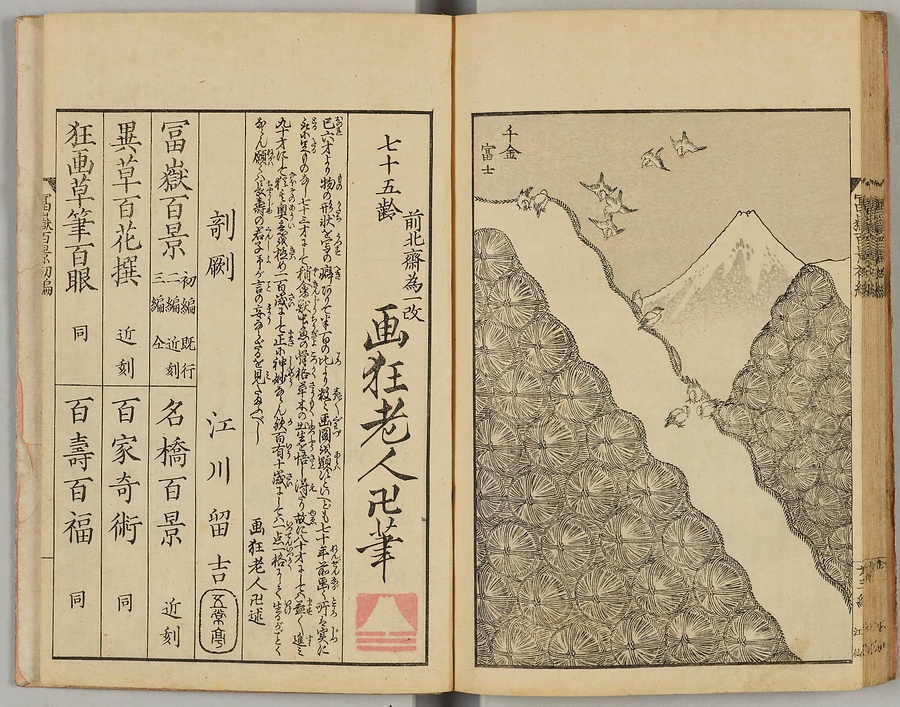 千金
富士
七十五齢
前北斎為一改
画狂老人卍筆
己六才より物の形状を写の癖ありて半百の比より数々画図を顕すといへども七十年前画く所は実に
取に足ものなし七十三才にして稍禽獣虫魚の骨格草木の出生を悟し得たり故に八十才にしては益々進み
九十才にして猶其奥意を極め一百歳にして正に神妙ならん歟百有十歳にしては一点一格にして生るがごとく
ならん願くは長寿の君子予が言の妄ならざるを見たまふべし
画狂老人卍述
剞劂 江川留吉 五常亭
冨嶽百景 初編既行 二編近刻 三編全
名橋百景 近刻
異草百花撰 近刻
百家奇術 同
狂画草筆百眼 同
百壽百福 同
冨嶽百景初編